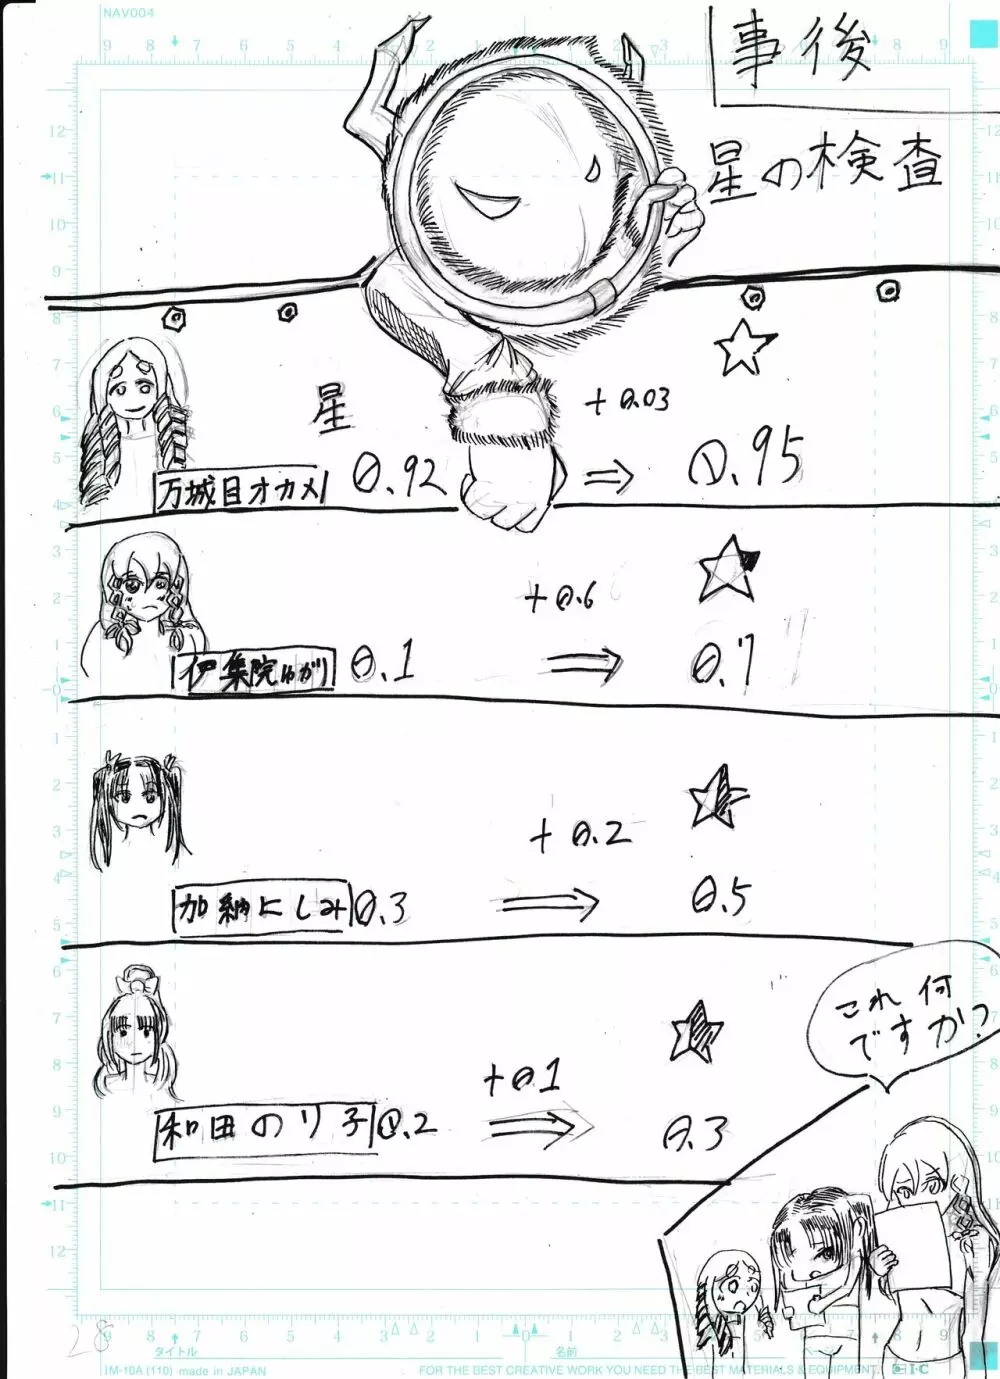 NAV004
事後
星の検査
星
+0.03
万城目オカメ
0.92
⇒
0.95
+0.6
伊集院ゆがり
0.1
⇒
0.7
+0.2
加納にしみ
0.3
⇒
0.5
+0.1
和田のり子
0.2
⇒
0.3
これ何
ですか?
28
タイトル
名前
ページ
IM-10A (110) made in JAPAN
FOR THE BEST CREATIVE WORK YOU NEED THE BEST MATERIALS & EQUIPMENT.
I·C